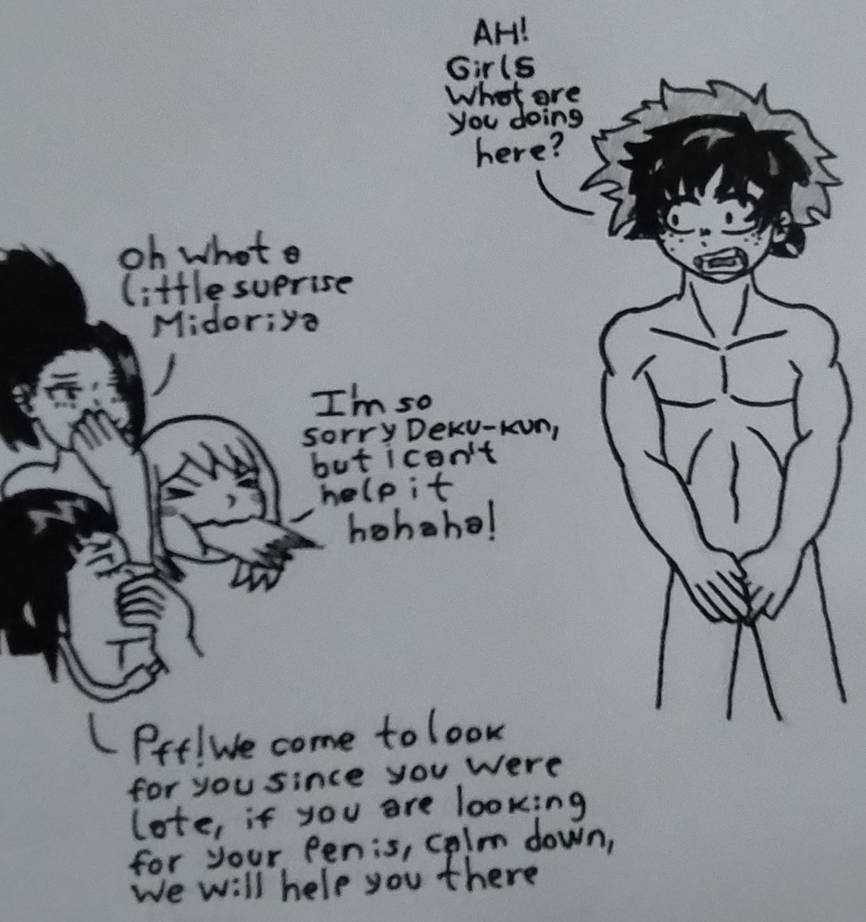 AH!
Girls
What are
you doing
here?
oh what a
little suprise
Midoriya
I'm so
sorry Deku-kun,
but i can't
help it
hahaha!
Pff! We come to look
for you since you were
late, if you are looking
for your penis, calm down,
we will help you there